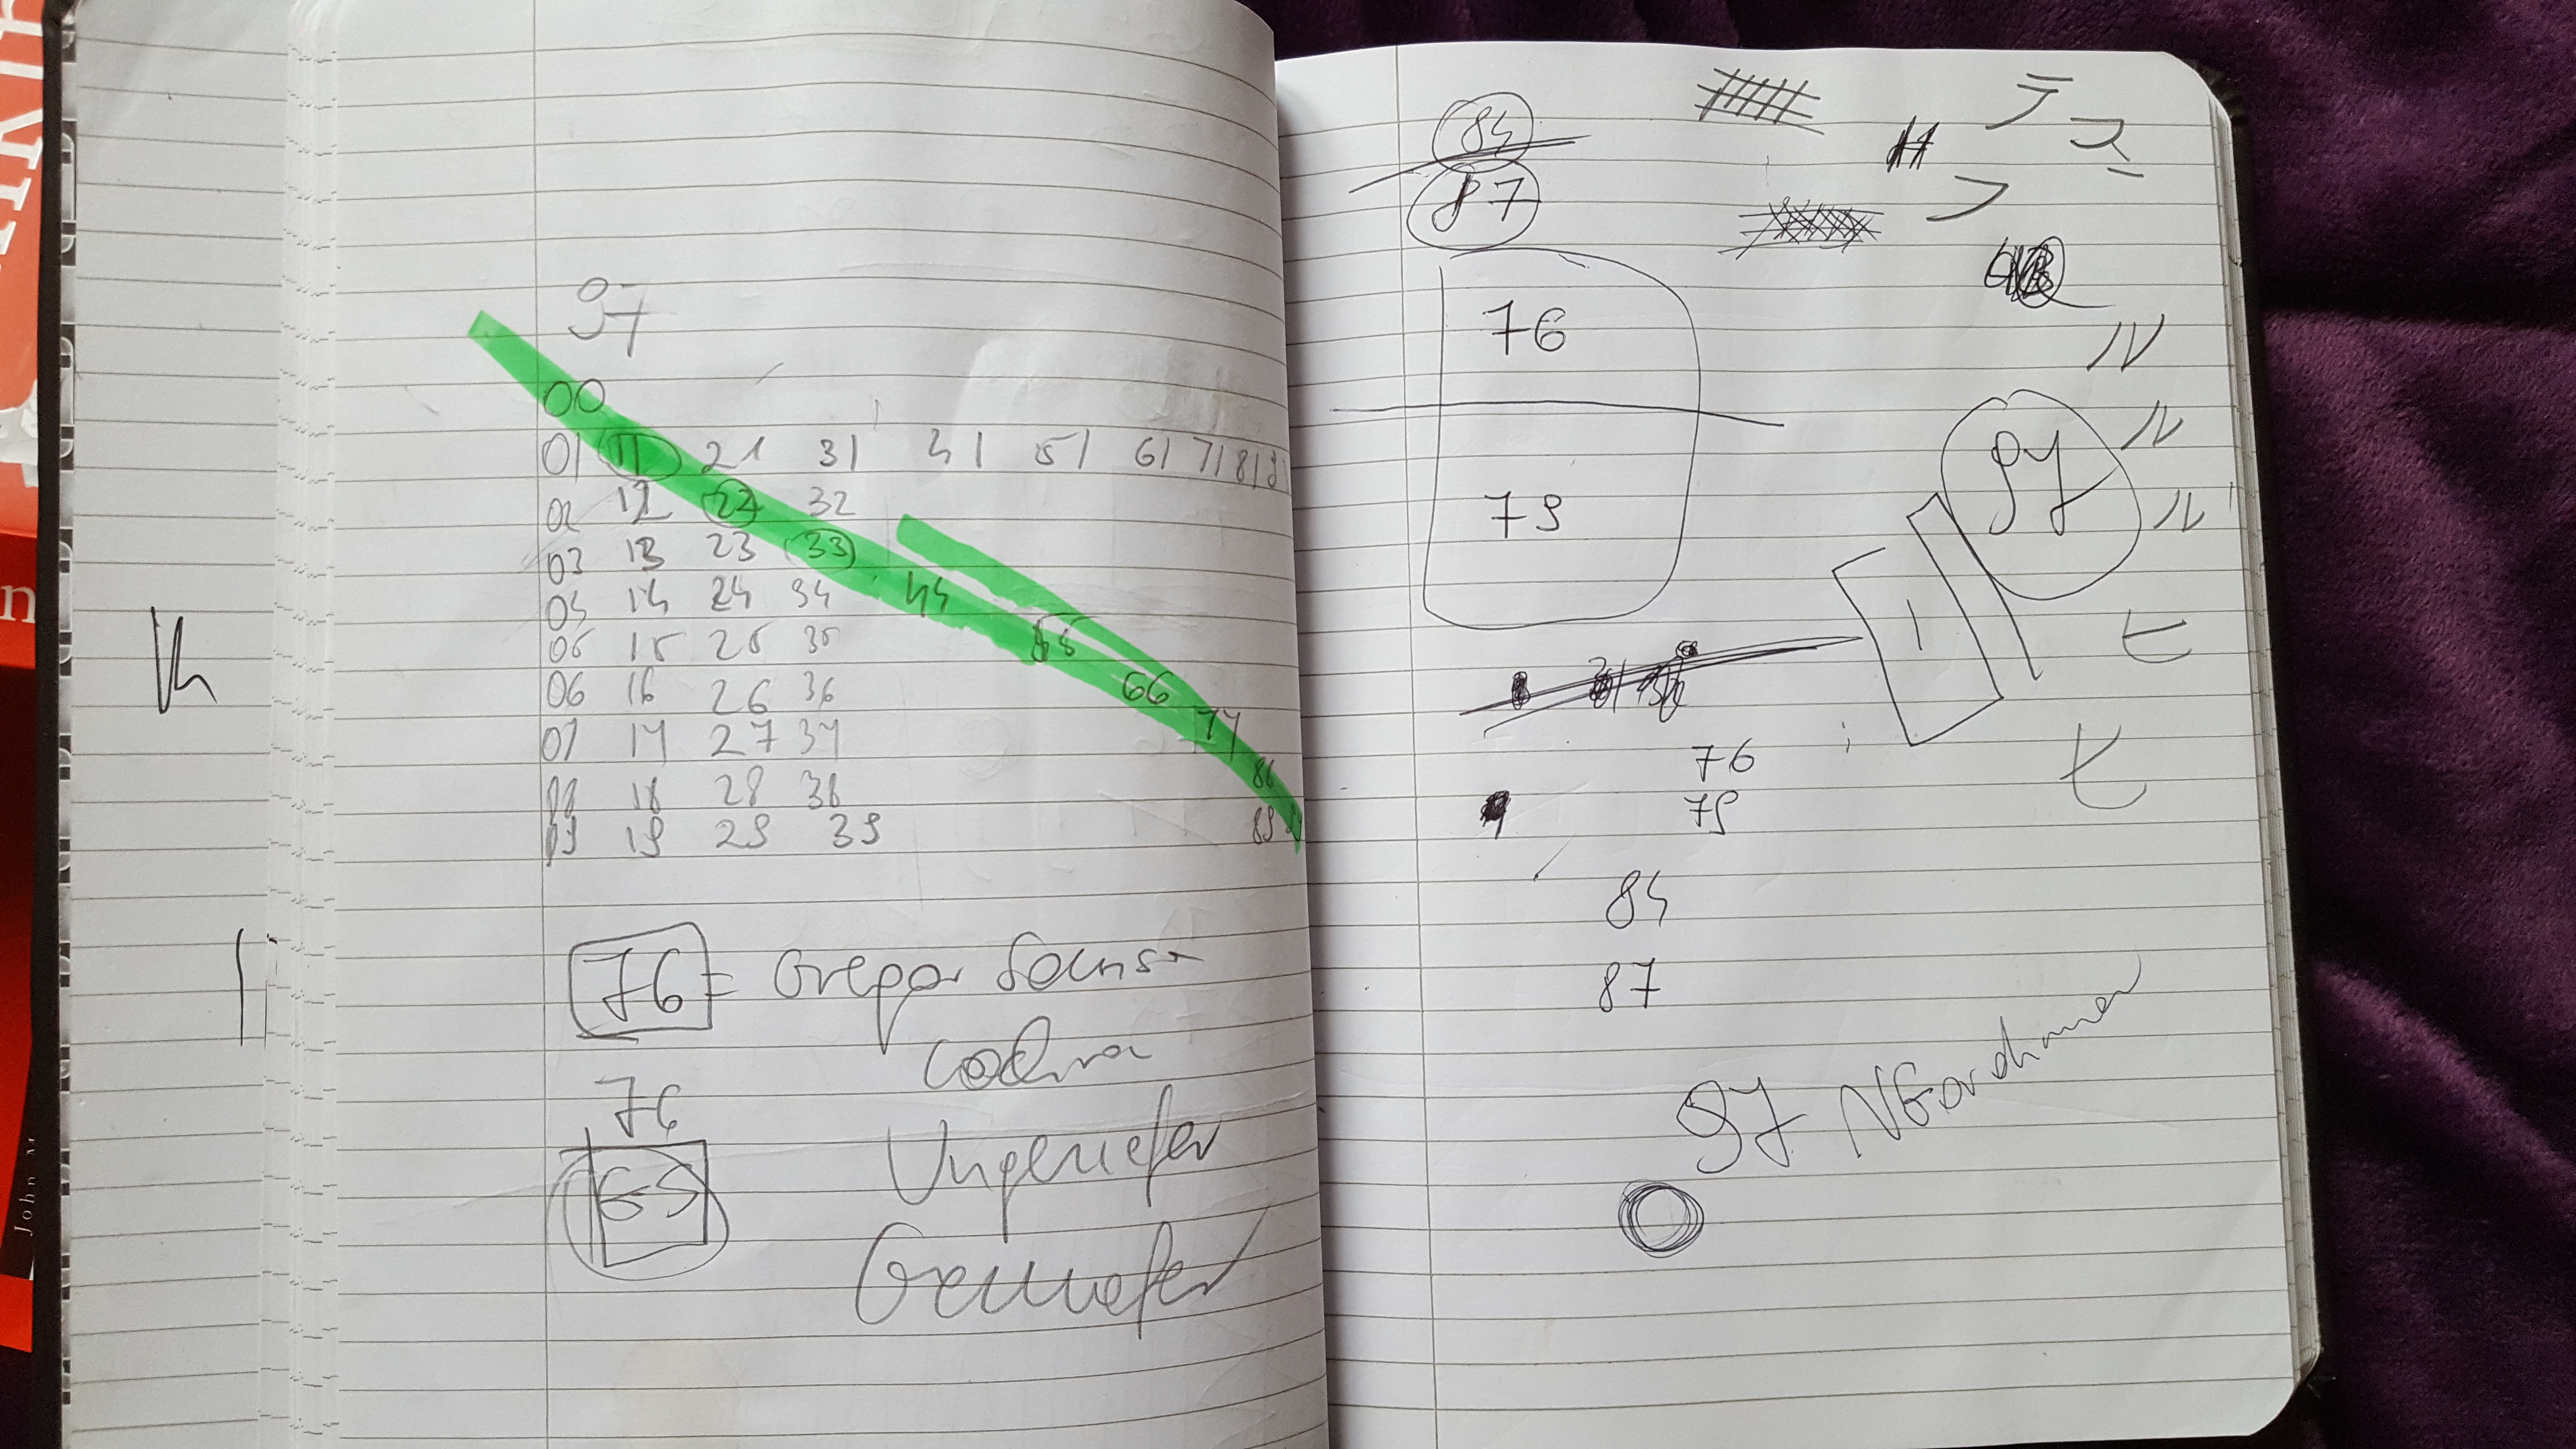 97
00
01 11 21 31 41 51 61 71 81
02 12 22 32
03 13 23 33
04 14 24 34 44
05 15 25 35 55
06 16 26 36 66
07 17 27 37 77
08 18 28 38 88
09 19 29 39 89 99
76 = Gregor Samsa
76
Ungeziefer
69
84
87
76
79
テ
ス
フ
ル
ル
ル
97
ヒ
ヒ
76
79
84
87
97 NGordhimer
John M